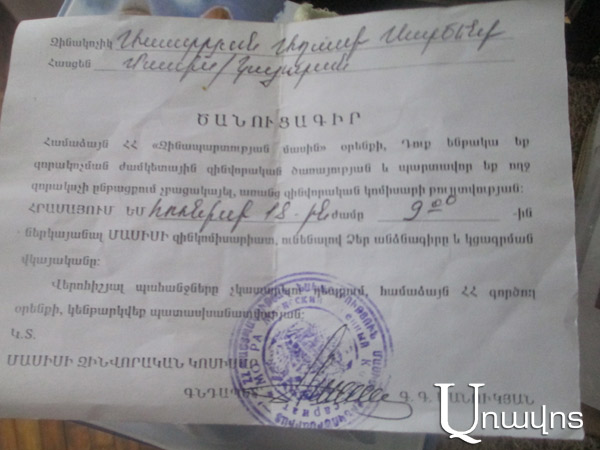 Զինակոչիկ
Հասցեն Մասիս/կայարան
ԾԱՆՈՒՑԱԳԻՐ
Համաձայն ՀՀ «Զինապարտության մասին» օրենքի, Դուք ենթակա եք
զորակոչման ժամկետային զինվորական ծառայության և պարտավոր եք ողջ
զորակոչի ընթացքում չբացակայել, առանց զինվորական կոմիսարի թույլտվության:
ՀՐԱՄԱՅՈՒՄ ԵՄ հունիսի 18-ին ժամը 9 00 -ին
ներկայանալ ՄԱՍԻՍԻ զինկոմիսարիատ, ունենալով Ձեր անձնագիրը և կցագրման
վկայականը:
Վերոհիշյալ պահանջները չկատարելու դեպքում, համաձայն ՀՀ գործող
օրենքի, կենթարկվեք պատասխանատվության:
Կ.Տ.
ՄԱՍԻՍԻ ԶԻՆՎՈՐԱԿԱՆ ԿՈՄԻՍԱՐ
ԳՆԴԱՊԵՏ Գ. Գ.
Առավոտ